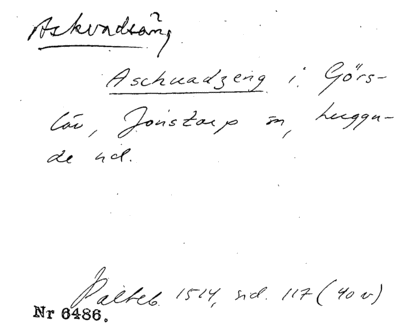 Askvadsäng
Aschuadzeng i Görs-
löv, Jonstorp sn, Luggu-
de hd.
Palteb. 1514, sid. 117 (40 v)
Nr 6486.